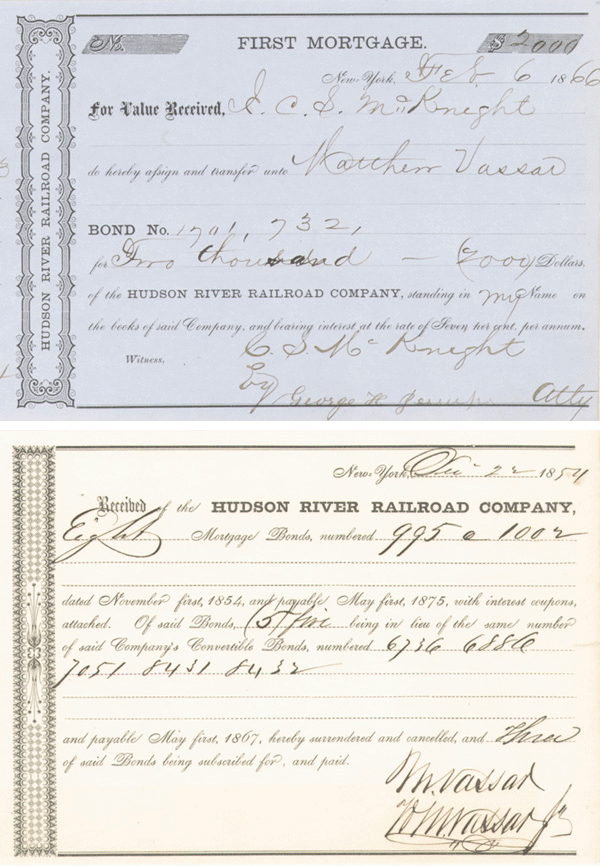 No.
FIRST MORTGAGE.
$2000
New-York, Feb. 6 1866
HUDSON RIVER RAILROAD COMPANY.
For Value Received, I. C. S. McKnight
do hereby aſsign and transfer unto Matthew Vassar
BOND No. 1701, 732,
for Two thousand — (2000) Dollars,
of the HUDSON RIVER RAILROAD COMPANY, standing in my Name on
the books of said Company, and bearing interest at the rate of Seven per cent. per annum.
Witness. C. S. McKnight
By George H Atty
New-York, Dec 22 1854
Received of the HUDSON RIVER RAILROAD COMPANY,
Eight Mortgage Bonds, numbered 995 @ 1002
dated November first, 1854, and payable May first, 1875, with interest coupons,
attached. Of said Bonds, (5) five being in lieu of the same number
of said Company's Convertible Bonds, numbered 6736 6886
7051 8431 8432
and payable May first, 1867, hereby surrendered and cancelled, and Three
of said Bonds being subscribed for, and paid.
M. Vassar
M. Vassar Jr